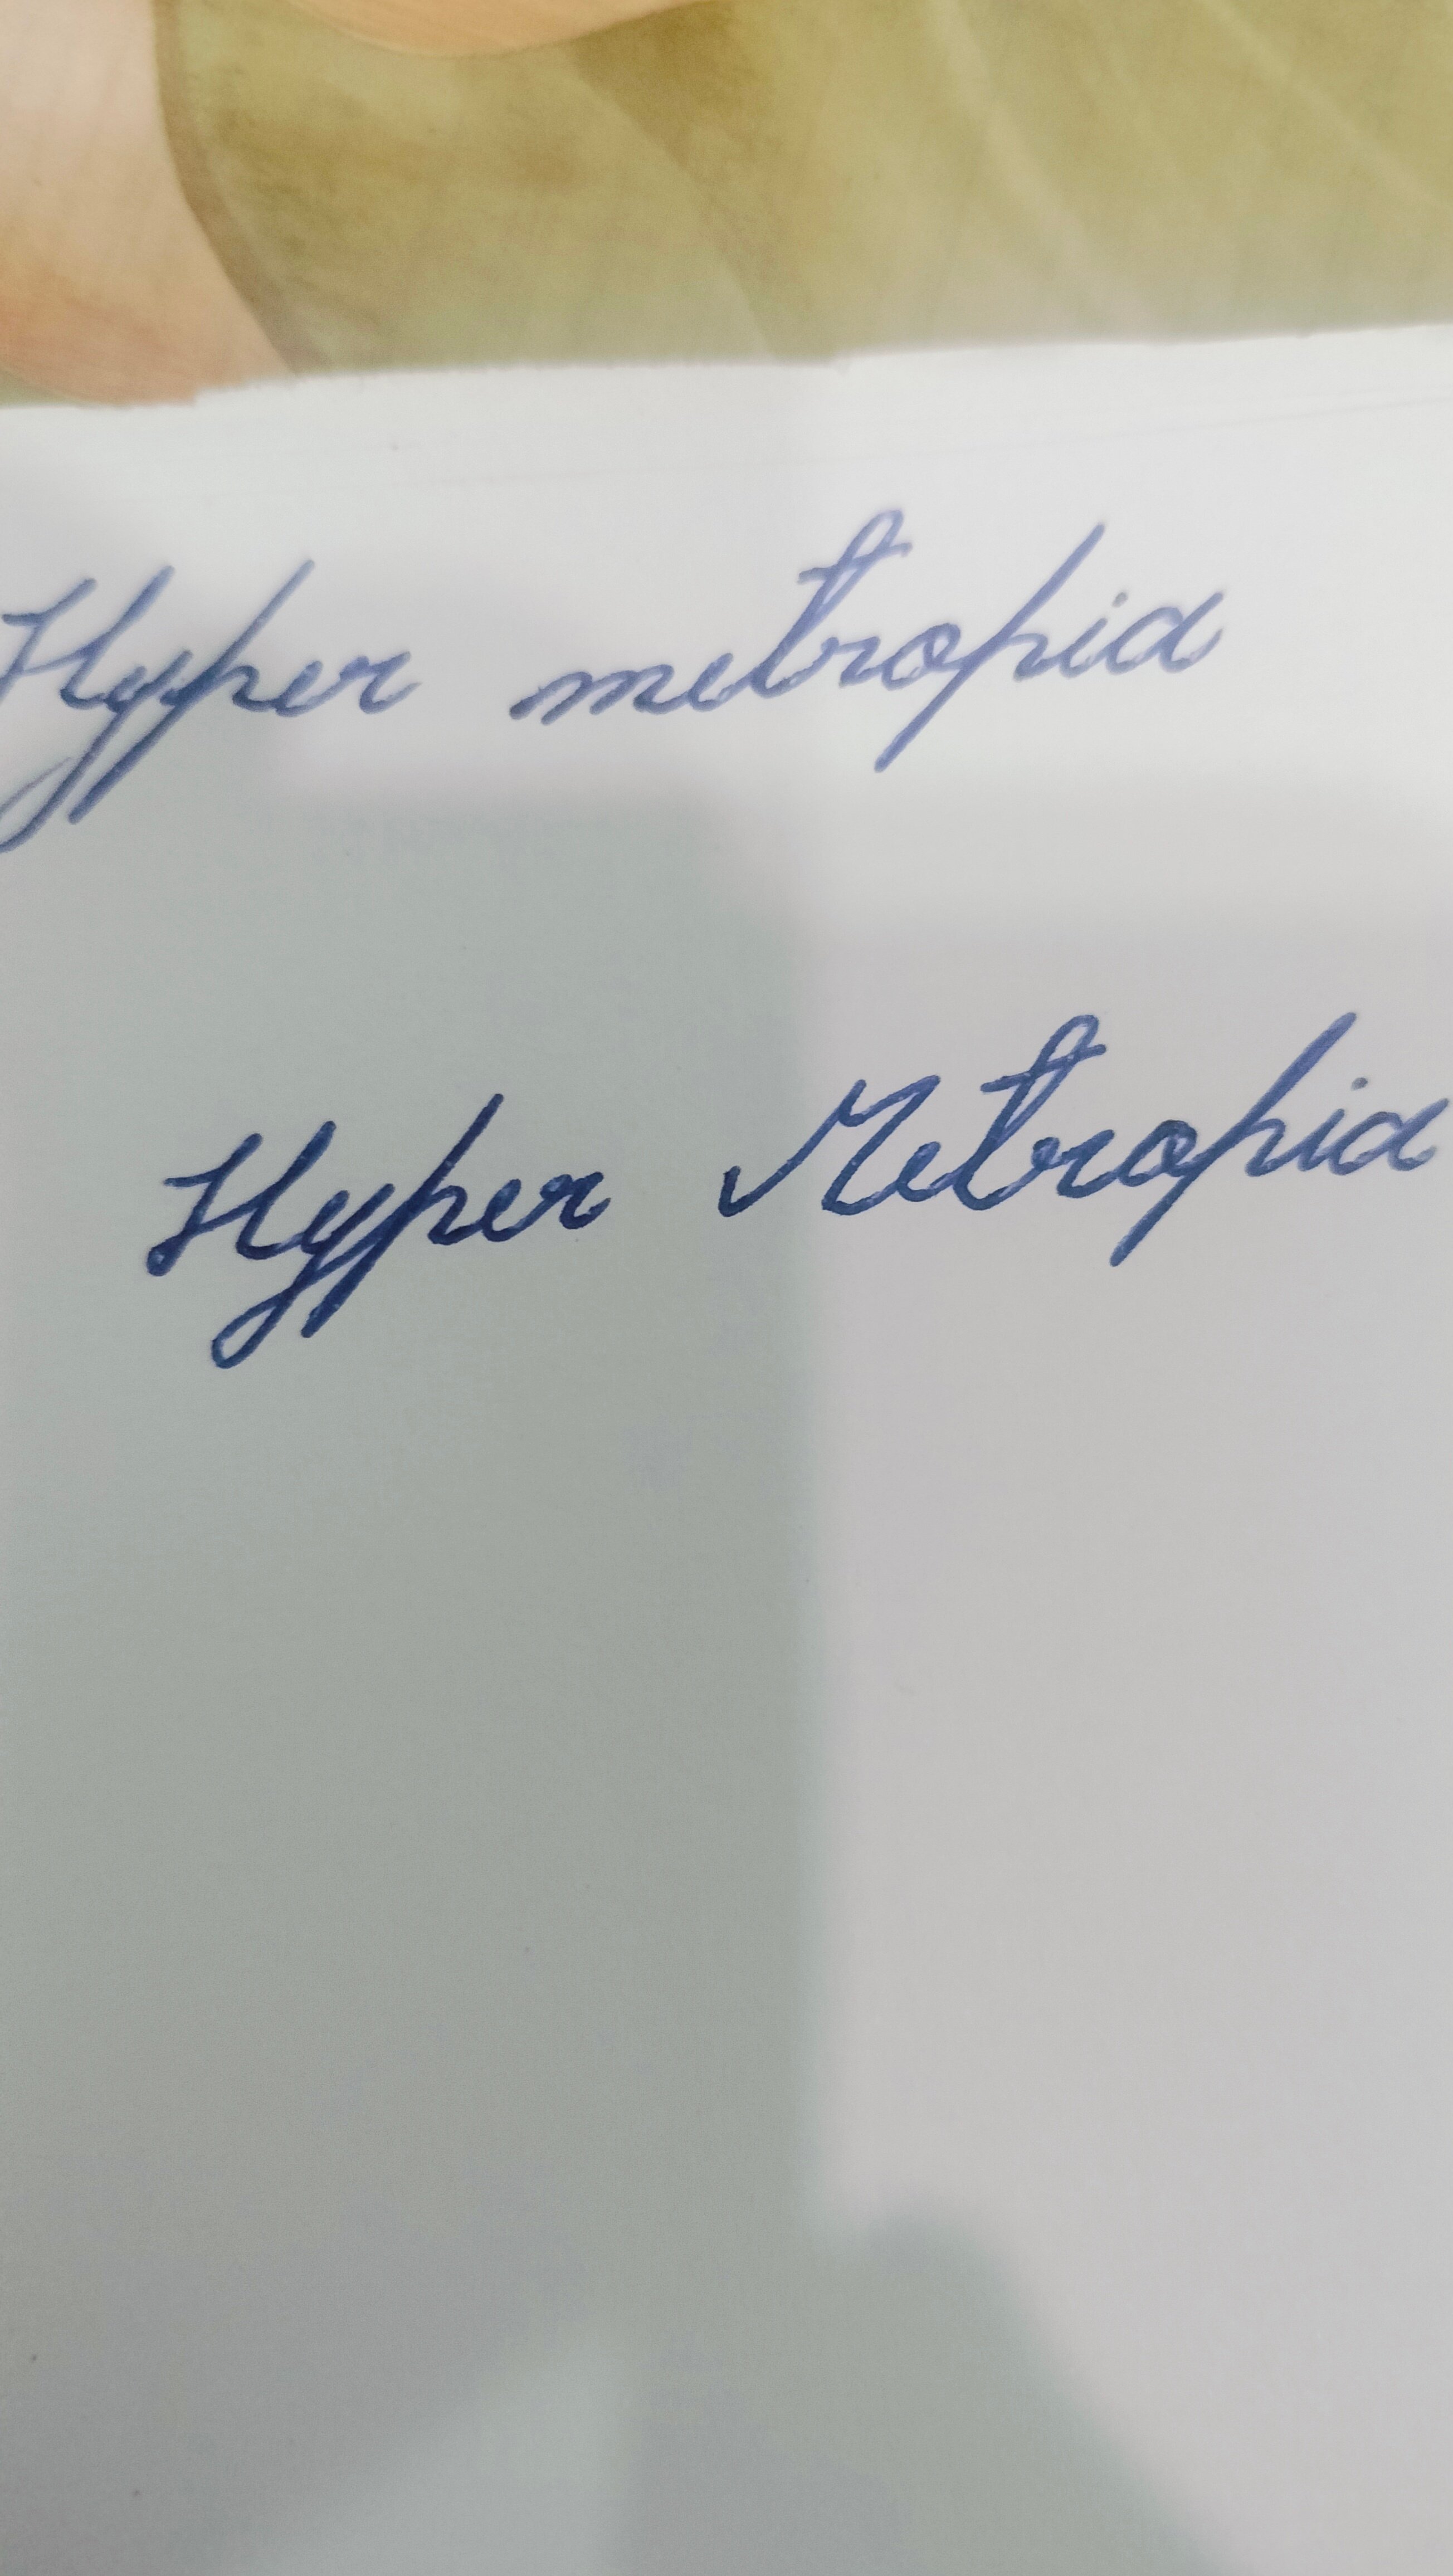 Hyper metropia
Hyper Metropia